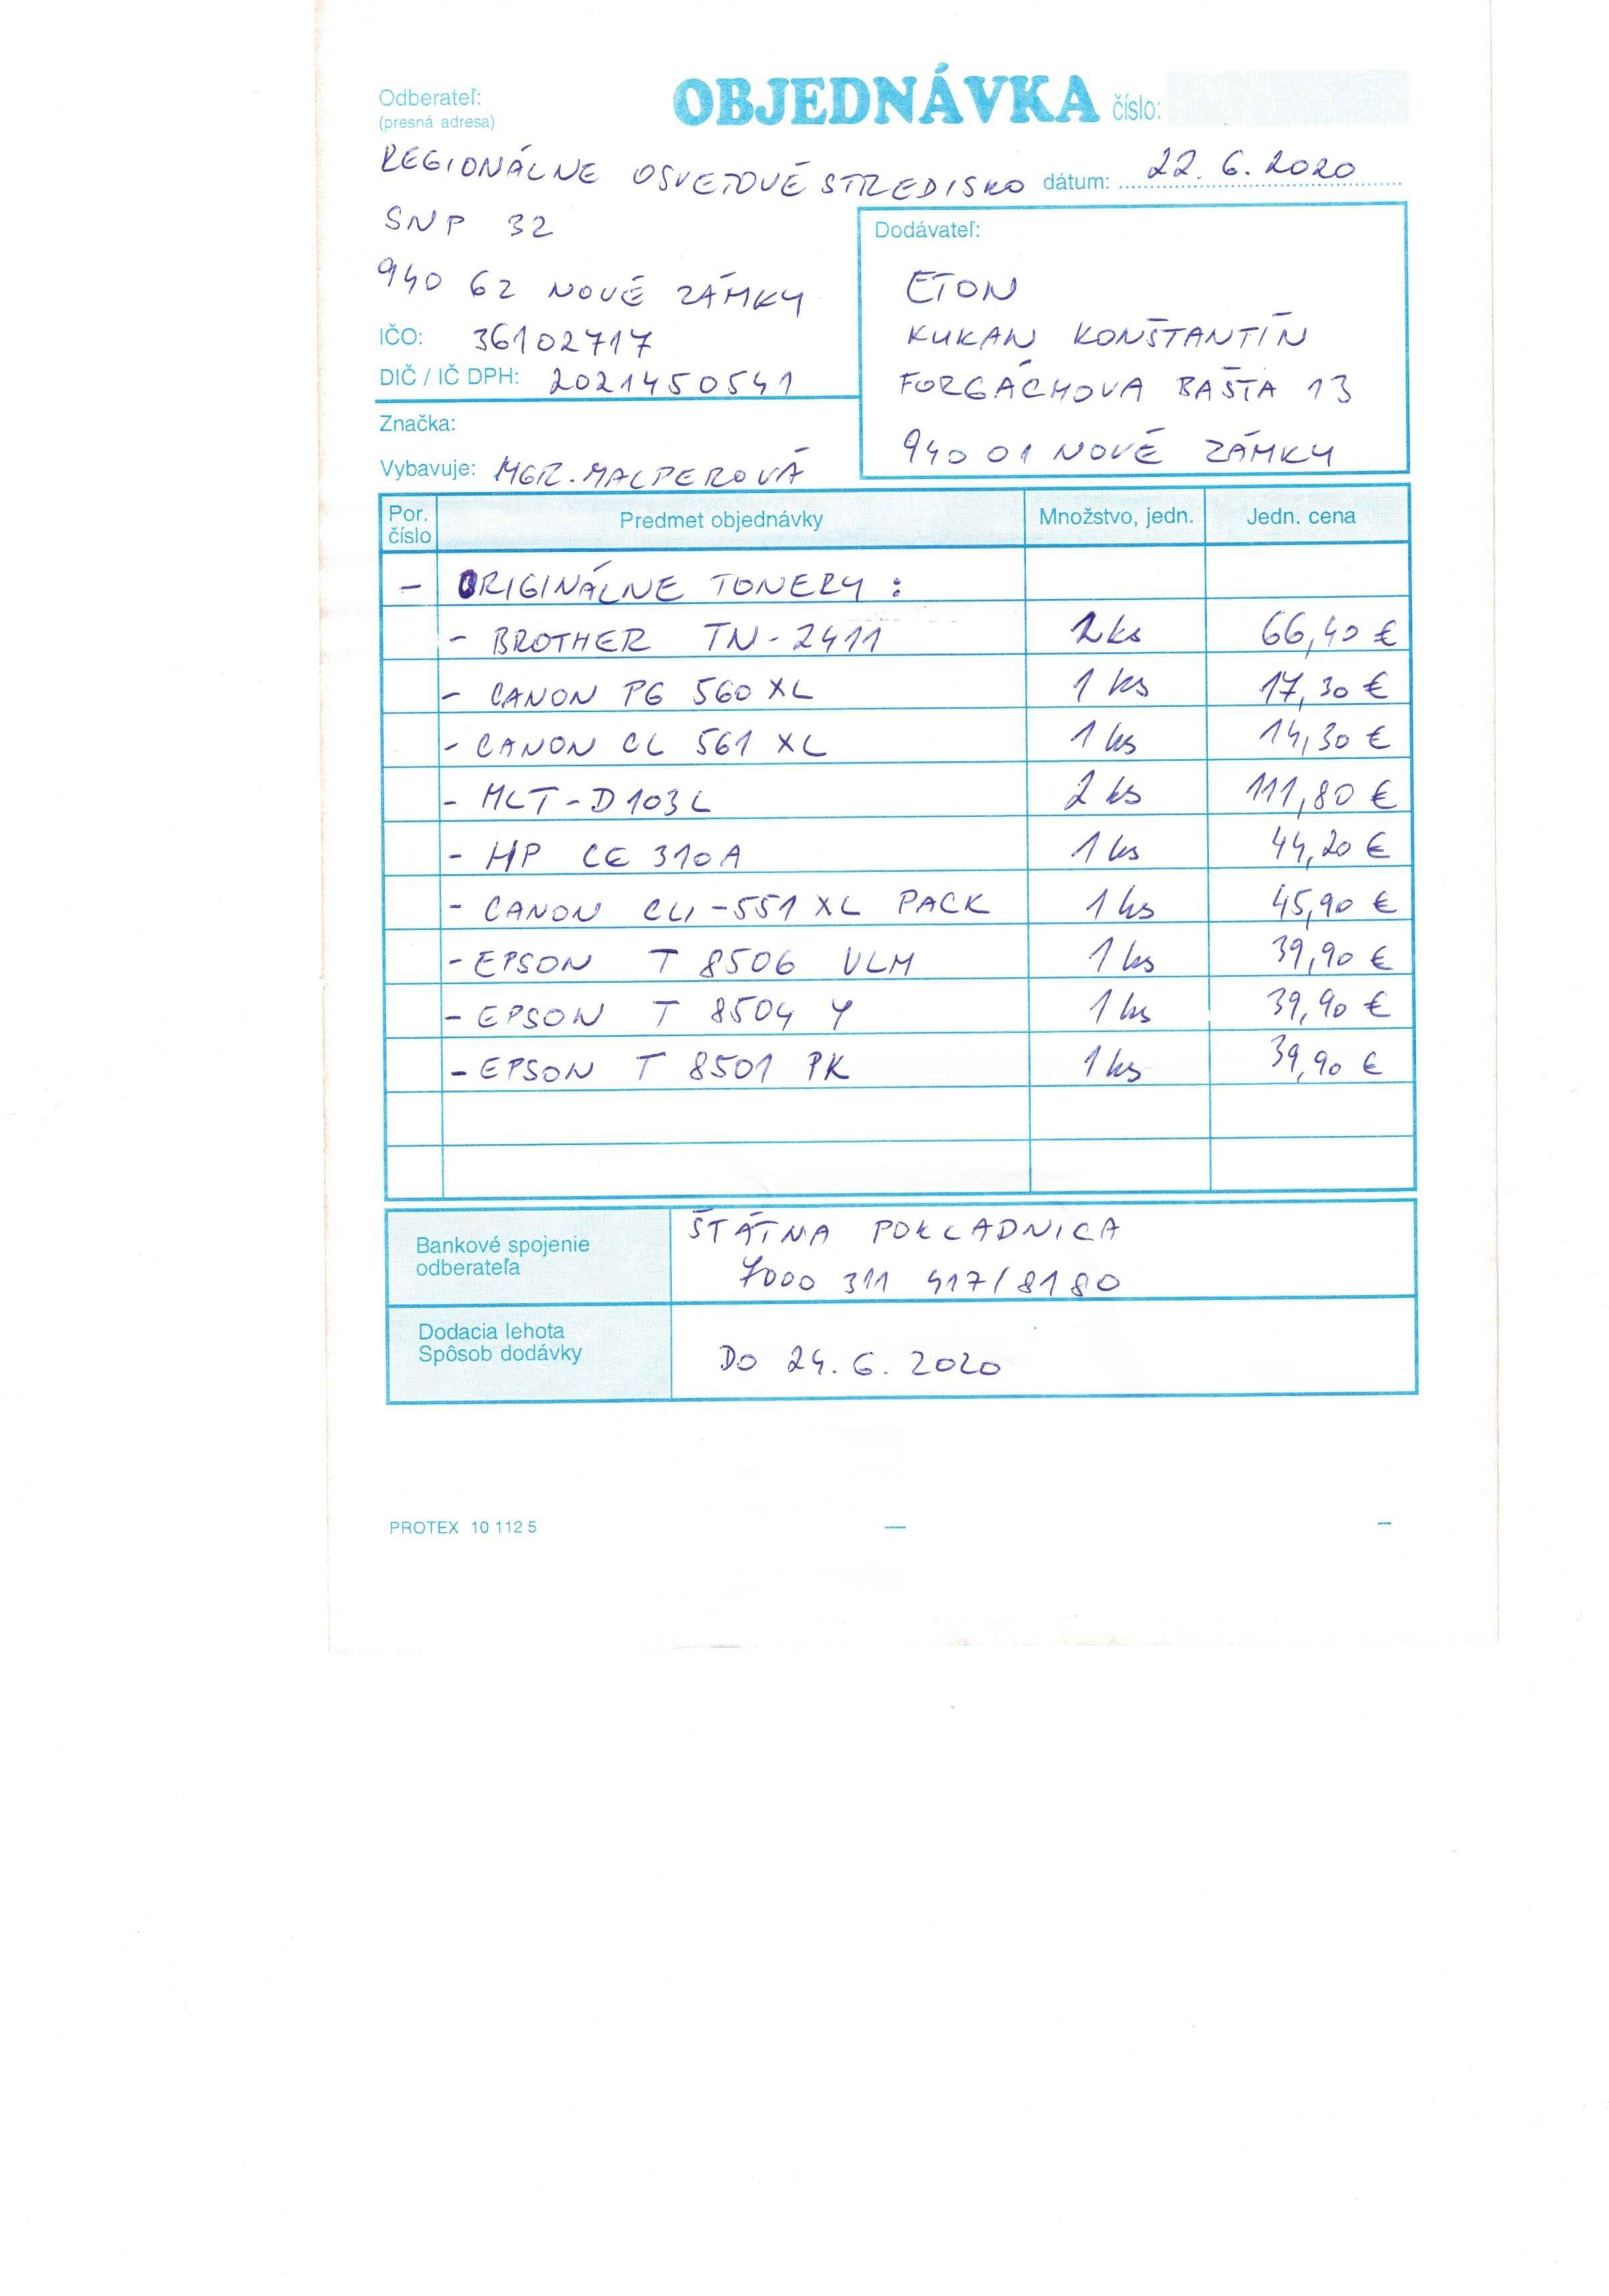 Odberateľ:
(presná adresa)
OBJEDNÁVKA číslo:
REGIONÁLNE OSVETOVÉ STREDISKO
dátum: 22. 6. 2020
SNP 32
940 62 NOVÉ ZÁMKY
IČO: 36102717
DIČ / IČ DPH: 2021450541
Značka:
Vybavuje: MGR. MALPEROVÁ
Dodávateľ:
ETON
KUKAN KONŠTANTÍN
FORGÁCHOVA BAŠTA 13
940 01 NOVÉ ZÁMKY
Por. číslo Predmet objednávky Množstvo, jedn. Jedn. cena
- ORIGINÁLNE TONERY :
- BROTHER TN-2411 2 ks 66,40 €
- CANON PG 560 XL 1 ks 17,30 €
- CANON CL 561 XL 1 ks 14,30 €
- MLT-D103L 2 ks 111,80 €
- HP CE 310A 1 ks 44,20 €
- CANON CLI-551 XL PACK 1 ks 45,90 €
- EPSON T 8506 VLM 1 ks 39,90 €
- EPSON T 8504 Y 1 ks 39,90 €
- EPSON T 8501 PK 1 ks 39,90 €
Bankové spojenie
odberateľa
ŠTÁTNA POKLADNICA
7000 311 417/8180
Dodacia lehota
Spôsob dodávky
DO 24. 6. 2020
PROTEX 10 112 5